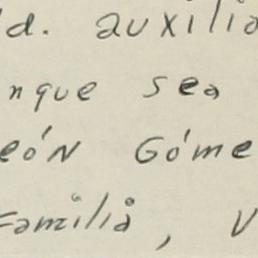 d. auxilia
nque sea
eón Góme
Familia, V